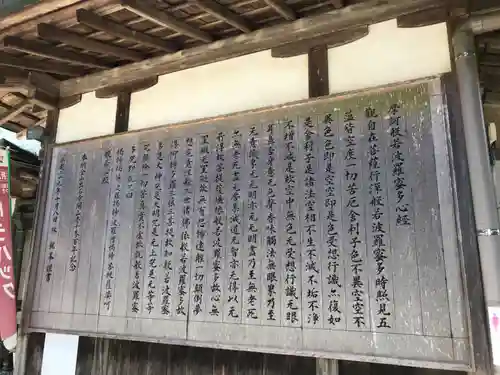 摩訶般若波羅蜜多心経
觀自在菩薩行深般若波羅蜜多時照見五
蘊皆空度一切苦厄舎利子色不異空空不
異色色即是空空即是色受想行識亦復如
是舎利子是諸法空相不生不滅不垢不浄
不増不減是故空中無色无受想行識無眼
耳鼻舌身意无色聲香味觸法無眼界乃至
无意識界无无明亦无无明盡乃至無老死
亦无老死盡无苦集滅道无智亦无得以无
所得故菩提薩埵依般若波羅蜜多故心無
罣礙无罣礙故无有恐怖遠離一切顛倒夢
想究竟涅槃三世諸佛依般若波羅蜜多故
得阿耨多羅三藐三菩提故知般若波羅蜜
多是大神咒是大明咒是无上咒是无等等
咒能除一切苦真實不虚故説般若波羅蜜
多咒即説咒曰
揭諦揭諦波羅揭諦波羅僧揭諦菩提薩婆訶
般若心経